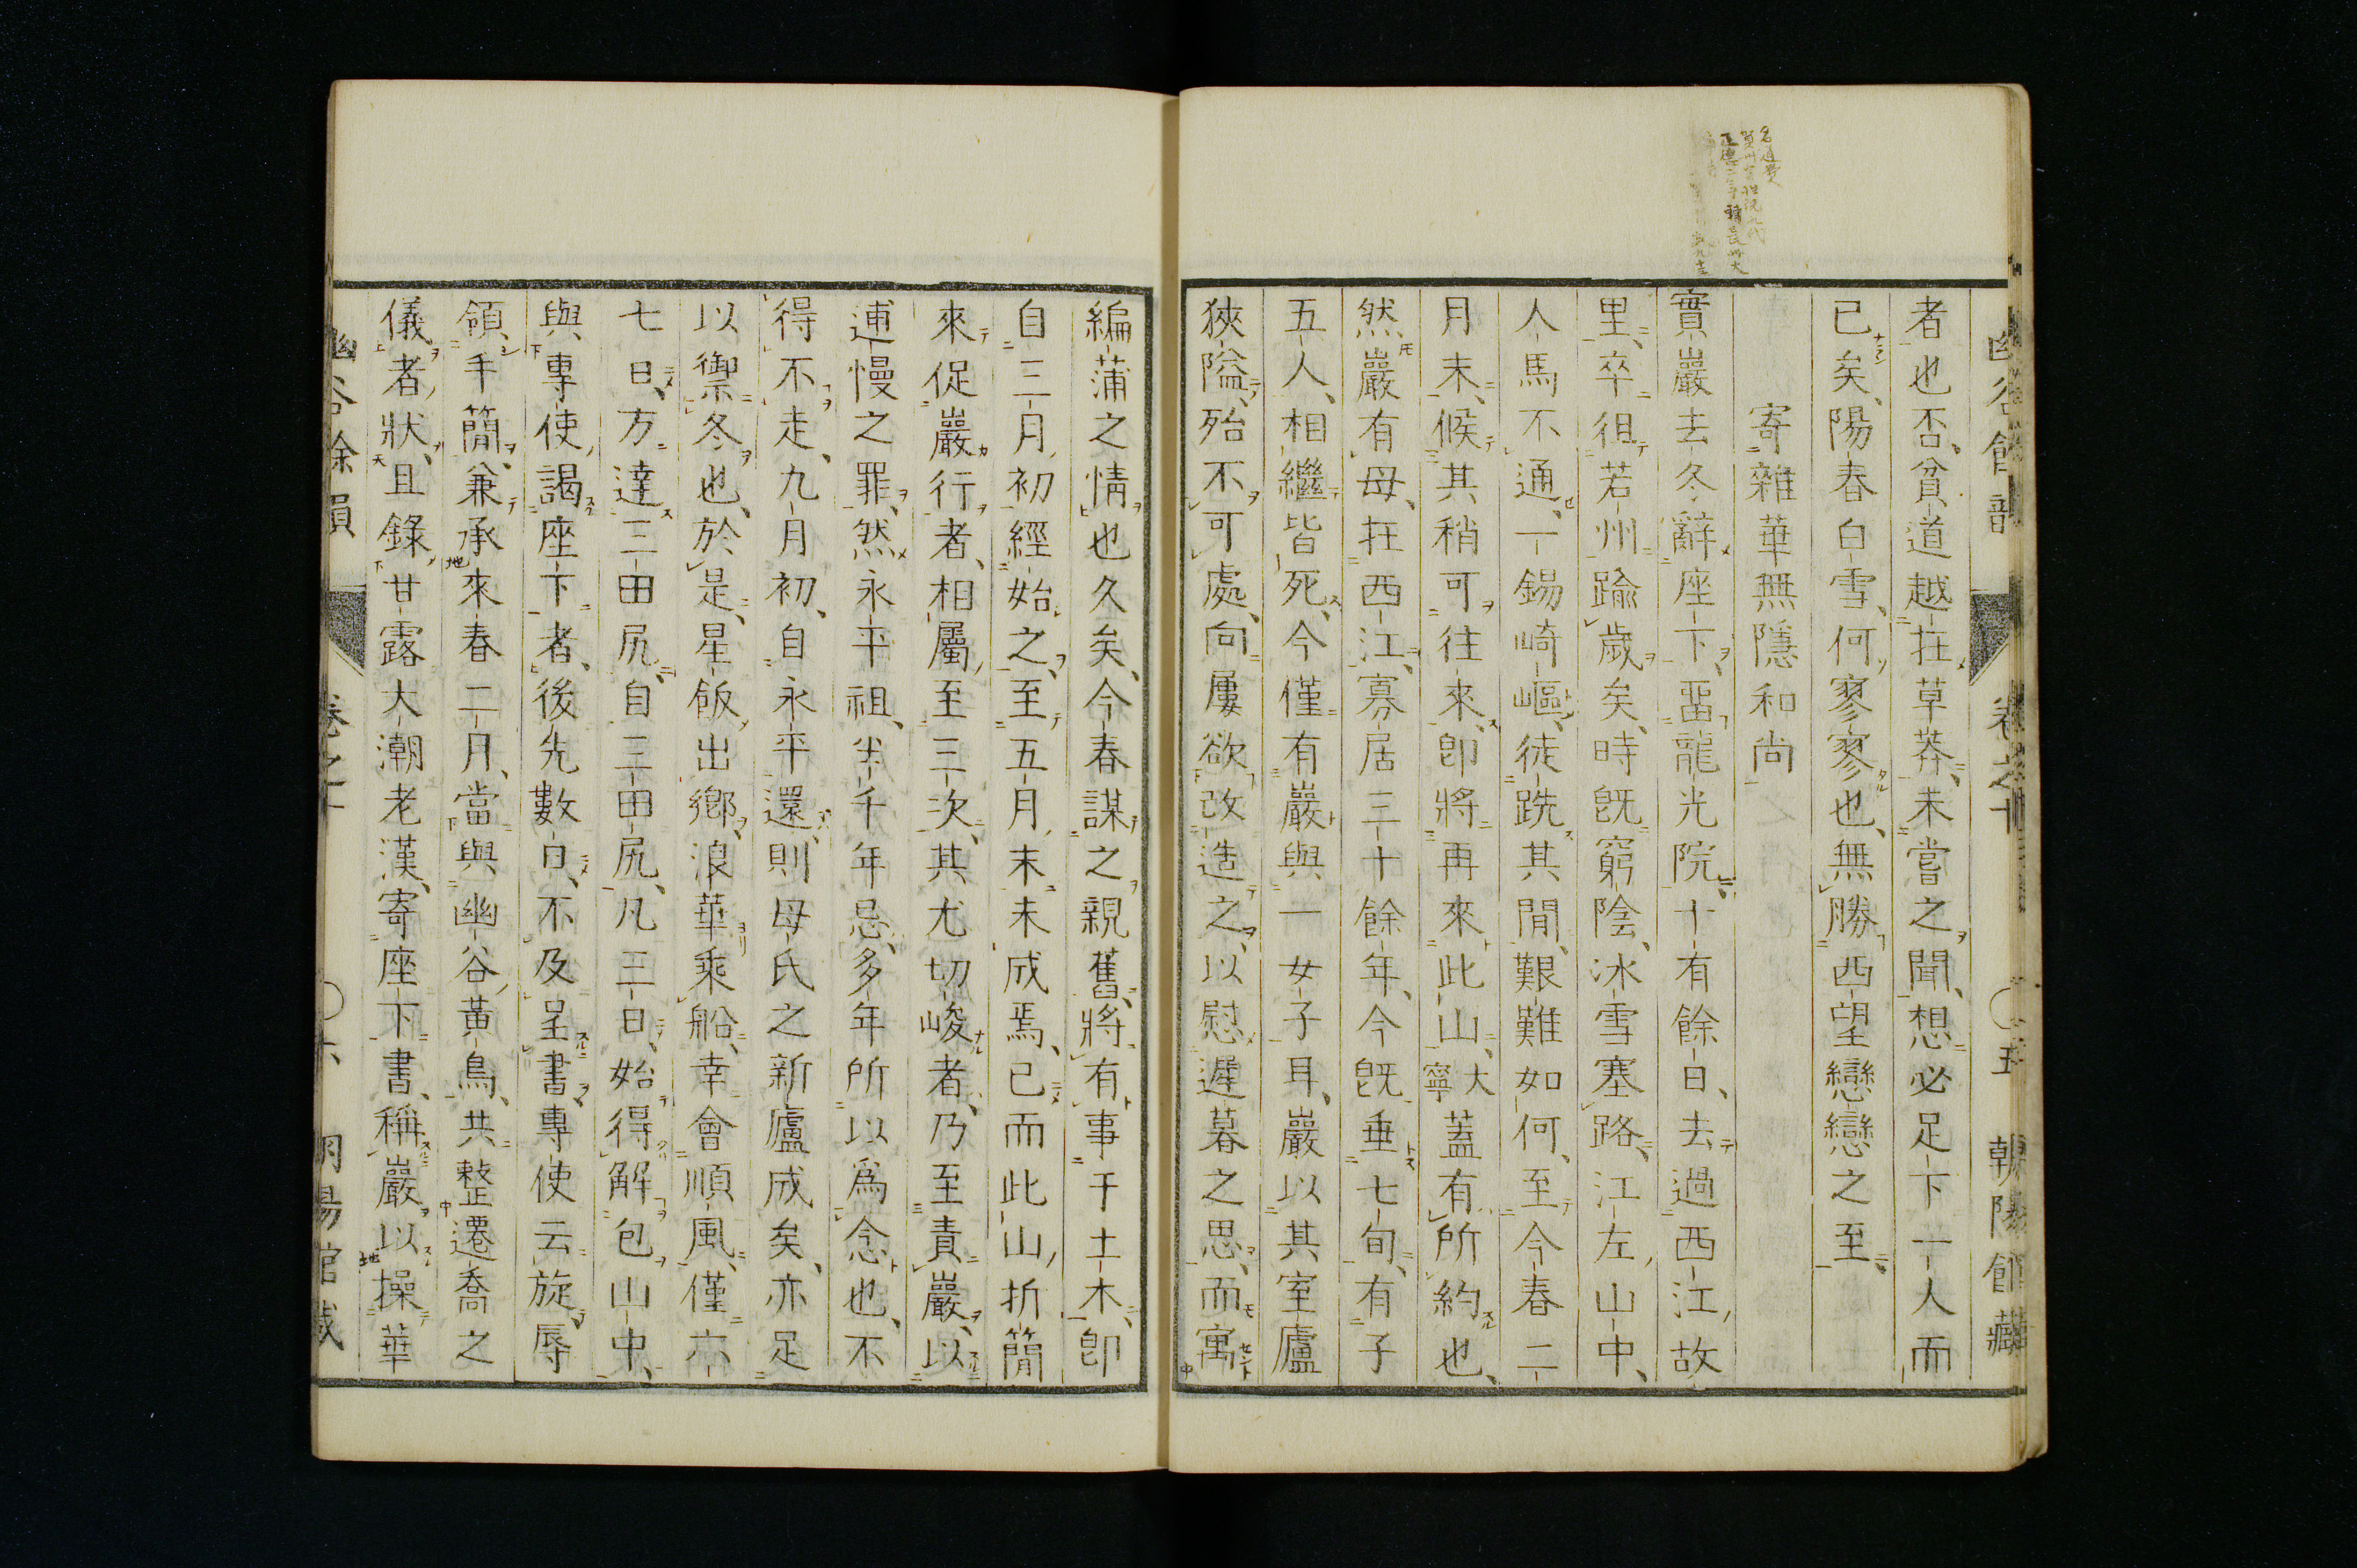 者也否、貧道越在草莽、未嘗之聞、想必足下一人而
已矣、陽春白雪、何寥寥也、無勝西望戀戀之至、
寄雜華無隱和尚
實巖去冬辭座下、畱龍光院十有餘日、去過西江、故
里、卒徂若州踰歲矣、時既窮陰、冰雪塞路、江左山中、
人馬不通、一錫崎嶇、徒跣其閒、艱難如何、至今春二
月末、候其稍可往來、卽將再來此山、大寧蓋有所約也、
然巖有母、在西江、寡居三十餘年、今既垂七旬、有子
五人、相繼皆死、今僅有巖與一女子耳、巖以其室廬
狹隘、殆不可處、向屢欲改造之、以慰遲暮之思、而寓
編蒲之情也久矣、今春謀之親舊、將有事于土木、卽
自三月初經始之、至五月末未成焉、已而此山折簡
來促巖行者、相屬至三次、其尤切峻者、乃至責巖、以
逋慢之罪、然永平祖半千年忌、多年所以爲念也、不
得不走、九月初、自永平還、則母氏之新廬成矣、亦足
以禦冬也、於是、星飯出鄉、浪華乘船、幸會順風、僅六
七日、方達三田尻、自三田尻、凡三日、始得解包山中、
與專使謁座下者、後先數日、不及呈書專使云、旋辱
領手簡、兼承來春二月、當與幽谷黃鳥、共整遷喬之
儀者、狀、且錄甘露大潮老漢、寄座下書、稱巖以操華
幽谷餘韻 卷之十 〇六 朝陽館藏